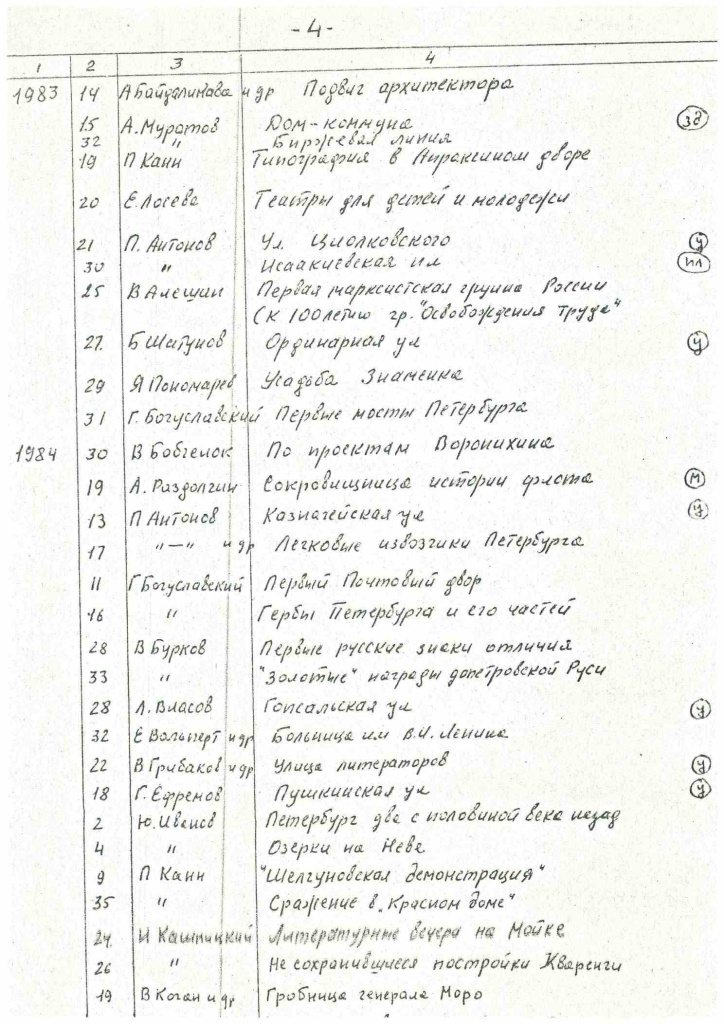 -4-
1 2 3 4
1983 14 А Байдалинова и др Подвиг архитектора
15 А. Муратов Дом-коммуна зд
32 " Биржевая линия
19 П Канн Типография в Апраксином дворе
20 Е. Лосева Театры для детей и молодежи
21 П. Антонов Ул. Циолковского у
30 " Исаакиевская пл пл
25 В Алешин Первая марксистская группа России
(к 100летию гр. "Освобождения труда"
27 Б Шатунов Ординарная ул у
29 Я Пономарев Усадьба Знаменка
31 Г. Богуславский Первые мосты Петербурга
1984 30 В Бобченок По проектам Воронихина
19 А. Раздолгин Сокровищница истории флота м
13 П Антонов Казначейская ул у
17 "—" и др Легковые извозчики Петербурга
11 Г Богуславский Первый Почтовый двор
16 " Гербы Петербурга и его частей
28 В Бурков Первые русские знаки отличия
33 " "Золотые" награды допетровской Руси
28 Л. Власов Гопсальская ул у
32 Е Вольперт и др Больница им В.И. Ленина
22 В Грибаков и др Улица литераторов у
18 Г. Ефремов Пушкинская ул у
2 Ю. Иванов Петербург два с половиной века назад
4 " Озерки на Неве
9 П Канн "Шелгуновская демонстрация"
35 " Сражение в "Красном доме"
24 И Кашницкий Литературные вечера на Мойке
26 " Не сохранившиеся постройки Кваренги
19 В Коган и др Гробница генерала Моро